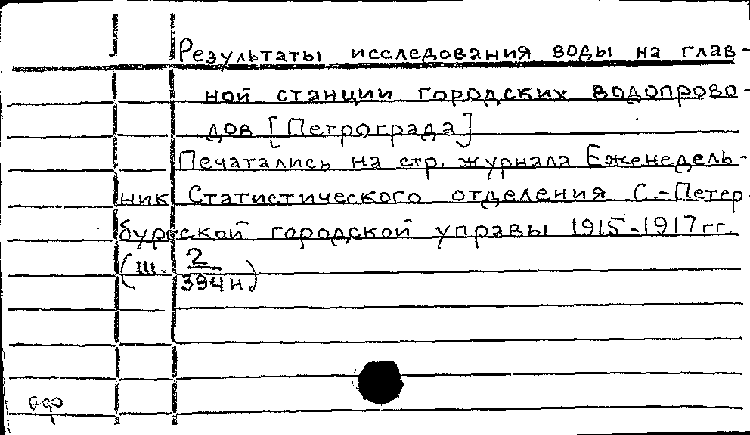 Результаты исследования воды на глав-
ной станции городских водопрово-
дов [Петрограда]
Печатались на стр. журнала Еженедель-
ник Статистического отделения С.-Петер
бургской городской управы 1915-1917гг.
(Ш. 2
394н)